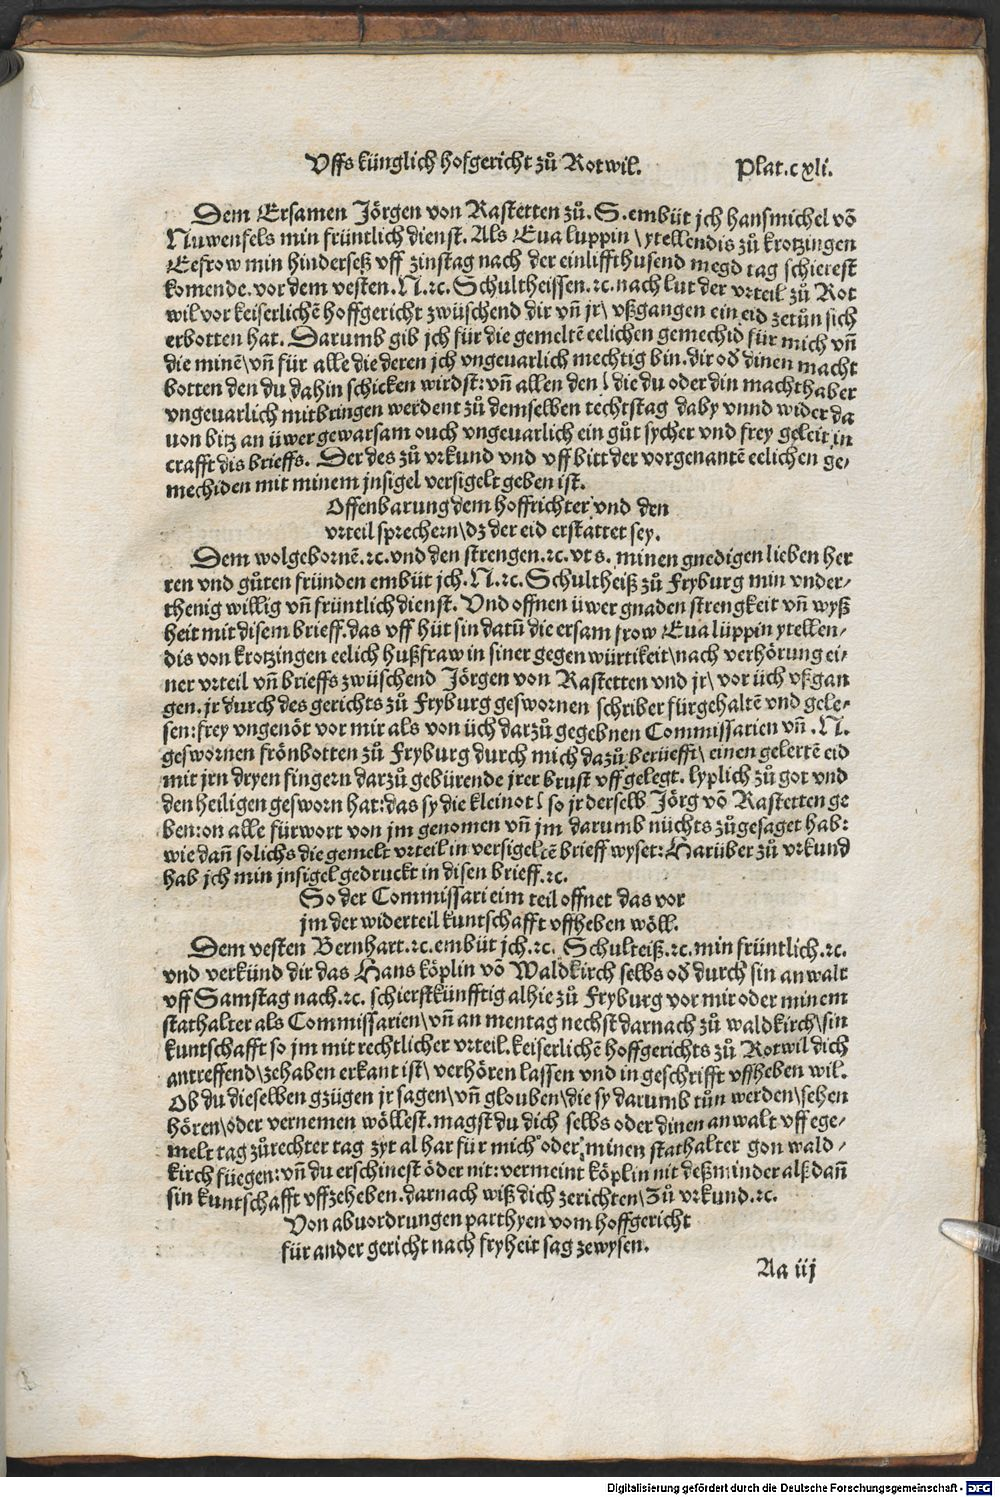 Uffs künglich hofgericht zů Rotwil. Plat.cxli.
Dem Ersamen Jörgen von Rastetten zů. S. embüt jch hansmichel vō
Nuwenfels min früntlich dienst. Als Eua luppin \ ytellendis zů krotzingen
Eefrow min hinderseß vff zinstag nach der einliffthusend megd tag schierest
komende. vor dem vesten. N. ⁊c. Schultheissen. ⁊c. nach lut der vrteil zů Rot
wil vor keiserlichē hoffgericht zwüschend dir vn̄ jr\ vßgangen ein eid zetůn sich
erbotten hat. Darumb gib jch für die gemeltē eelichen gemechid für mich vn̄
die minē\ vn̄ für alle die deren jch vngeuarlich mechtig bin. dir od̕ dinen macht
botten den du dahin schicken wirdst: vn̄ allen den \ die du oder din machthaber
vngeuarlich mitbringen werdent zů demselben techtstag daby vnnd wider da
uon bitz an üwer gewarsam ouch vngeuarlich ein gůt sycher vnd frey geleit in
crafft dis brieffs. Der des zů vrkund vnd vff bitt der vorgenantē eelichen ge⸗
mechiden mit minem jnsigel versigelt geben ist.
Offenbarung dem hoffrichter vnd den
vrteil sprechern\ dz der eid erstattet sey.
Dem wolgebornē. ⁊c. vnd den strengen. ⁊c. vt s. minen gnedigen lieben her
ren vnd gůten fründen embüt jch. N. ⁊c. Schultheiß zů Fryburg min vnder⸗
thenig willig vn̄ früntlich dienst. Vnd offnen üwer gnaden strengkeit vn̄ wyß
heit mit disem brieff. das vff hüt sin datū die ersam frow Eua lüppin ytellen⸗
dis von krotzingen eelich hußfraw in siner gegenwürtikeit\ nach verhörung ei⸗
ner vrteil vn̄ brieffs zwüschend Jörgen von Rastetten vnd jr\ vor üch vßgan
gen. jr durch des gerichts zů Fryburg geswornen schriber fürgehaltē vnd gele⸗
sen: frey vngenöt vor mir als von üch darzů gegebnen Commissarien vn̄. N.
geswornen frönbotten zů Fryburg durch mich dazů berüefft\ einen gelertē eid
mit jrn dryen fingern darzů gebürende jrer brust vffgelegt. lyplich zů got vnd
den heiligen gesworn hat: das sy die kleinot \ so jr derselb Jörg vō Rastetten ge
ben: on alle fürwort von jm genomen vn̄ jm darumb nüchts zůgesaget hab:
wie dan̄ solichs die gemelt vrteil in versigeltē brieff wyset: Harüber zů vrkund
hab jch min jnsigel gedruckt in disen brieff. ⁊c.
So der Commissari eim teil offnet das vor
jm der widerteil kuntschafft vffheben wöll.
Dem vesten Bernhart. ⁊c. embüt jch. ⁊c. Schulteiß. ⁊c. min früntlich. ⁊c.
vnd verkünd dir das Hans köplin vō Waldkirch selbs od̕ durch sin anwalt
vff Samstag nach. ⁊c. schierstkünfftig alhie zů Fryburg vor mir oder minem
stathalter als Commissarien\ vn̄ an mentag nechst darnach zů waldkirch\ sin
kuntschafft so jm mit rechtlicher vrteil. keiserlichē hoffgerichts zů Rotwil dich
antreffend\ zehaben erkant ist\ verhören lassen vnd in geschrifft vffheben wil.
Ob du dieselben gzügen jr sagen\ vn̄ glouben\ die sy darumb tůn werden\ sehen
hören\ oder vernemen wöllest. magst du dich selbs oder dinen anwalt vff ege⸗
melt tag zůrechter tag zyt alhar für mich oder minen stathalter gon wald⸗
kirch füegen: vn̄ du erschinest öder nit: vermeint köplin nit deßminder alß dan̄
sin kuntschafft vffzeheben. darnach wiß dich zerichten\ Zů vrkund. ⁊c.
Von abuordrungen parthyen vom hoffgericht
für ander gericht nach fryheit sag zewysen.
Aa iij
Digitalisierung gefördert durch die Deutsche Forschungsgemeinschaft - DFG